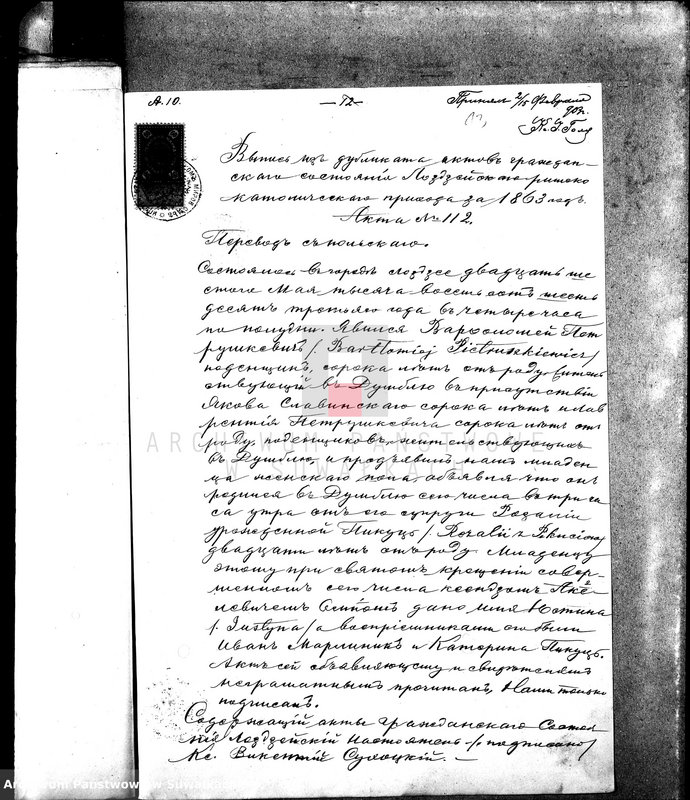 А. 10.
— 72 —
Принял 2/15 Февраля
907.
Выпись изъ дубликата актовъ граждан-
скаго состоянія Лоздзейскаго римско
католическаго прихода за 1863 годъ.
Акта № 112.
Переводъ съ польскаго.
Состоялось въ городѣ Лоздзее двадцать ше
стого Мая тысяча восемьсотъ шесть
десятъ третьяго года въ четыре часа
по полудни. Явился Варѳоломей Пет
рушкевичъ /: Bartłomiej Pietruszkiewicz/
поденщикъ, сорока лѣтъ отъ роду, житель
ствующій въ Думблю въ присутствіи
Якова Славинскаго сорока лѣтъ и Лав
рентія Петрушкевича сорока лѣтъ отъ
роду, поденщиковъ, жительствующихъ
въ Думблю, и предъявилъ намъ младен
ца женскаго пола, объявляя что онъ
родился въ Думблю сего числа въ три ча
са утра отъ его супруги Розаліи
урожденной Пикуцъ /: Rozalii z
двадцати лѣтъ отъ роду. Младенцу
этому при святомъ крещеніи совер-
шенномъ сего числа ксендзомъ
дано имя Юстина
/: Justyna / а воспріемниками его были
Иванъ и Катерина Пикуцъ.
Актъ сей объявляющему и свидѣтелямъ
неграматнымъ прочитанъ, Нами только
подписанъ.
Содержащій акты гражданскаго Состоя
нія Лоздзейскій Настоятель /: подписано/
Кс. Викентій Сухоцкій. —
ARCHIWUM PAŃSTWOWE
W SUWAŁKACH
Archiwum Państwowe w Suwałkach